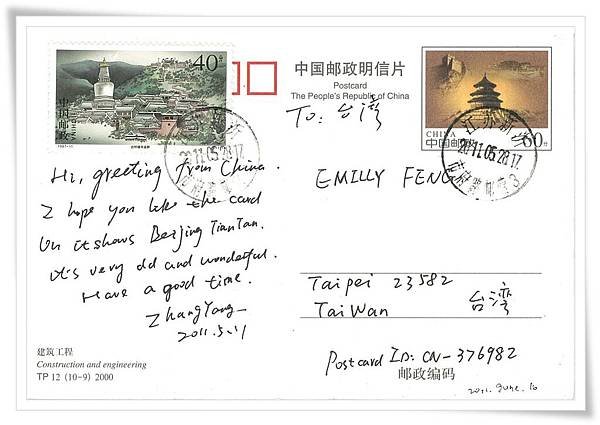 40分
中国邮政
1997-11
中国邮政明信片
Postcard
The People's Republic of China
CHINA
中国邮政
60分
江苏新沂
2011.05.28.17
To: 台湾
Hi, greeting from China.
I hope you like the card
Un it shows Beijing TianTan.
it's very old and wonderful.
Have a good time.
ZhangYang
2011.5.11
EMILLY FENG
Taipei 23582
TaiWan 台湾
Postcard ID: CN-376982
邮政编码
建筑工程
Construction and engineering
TP 12 (10-9) 2000
2011. June. 16